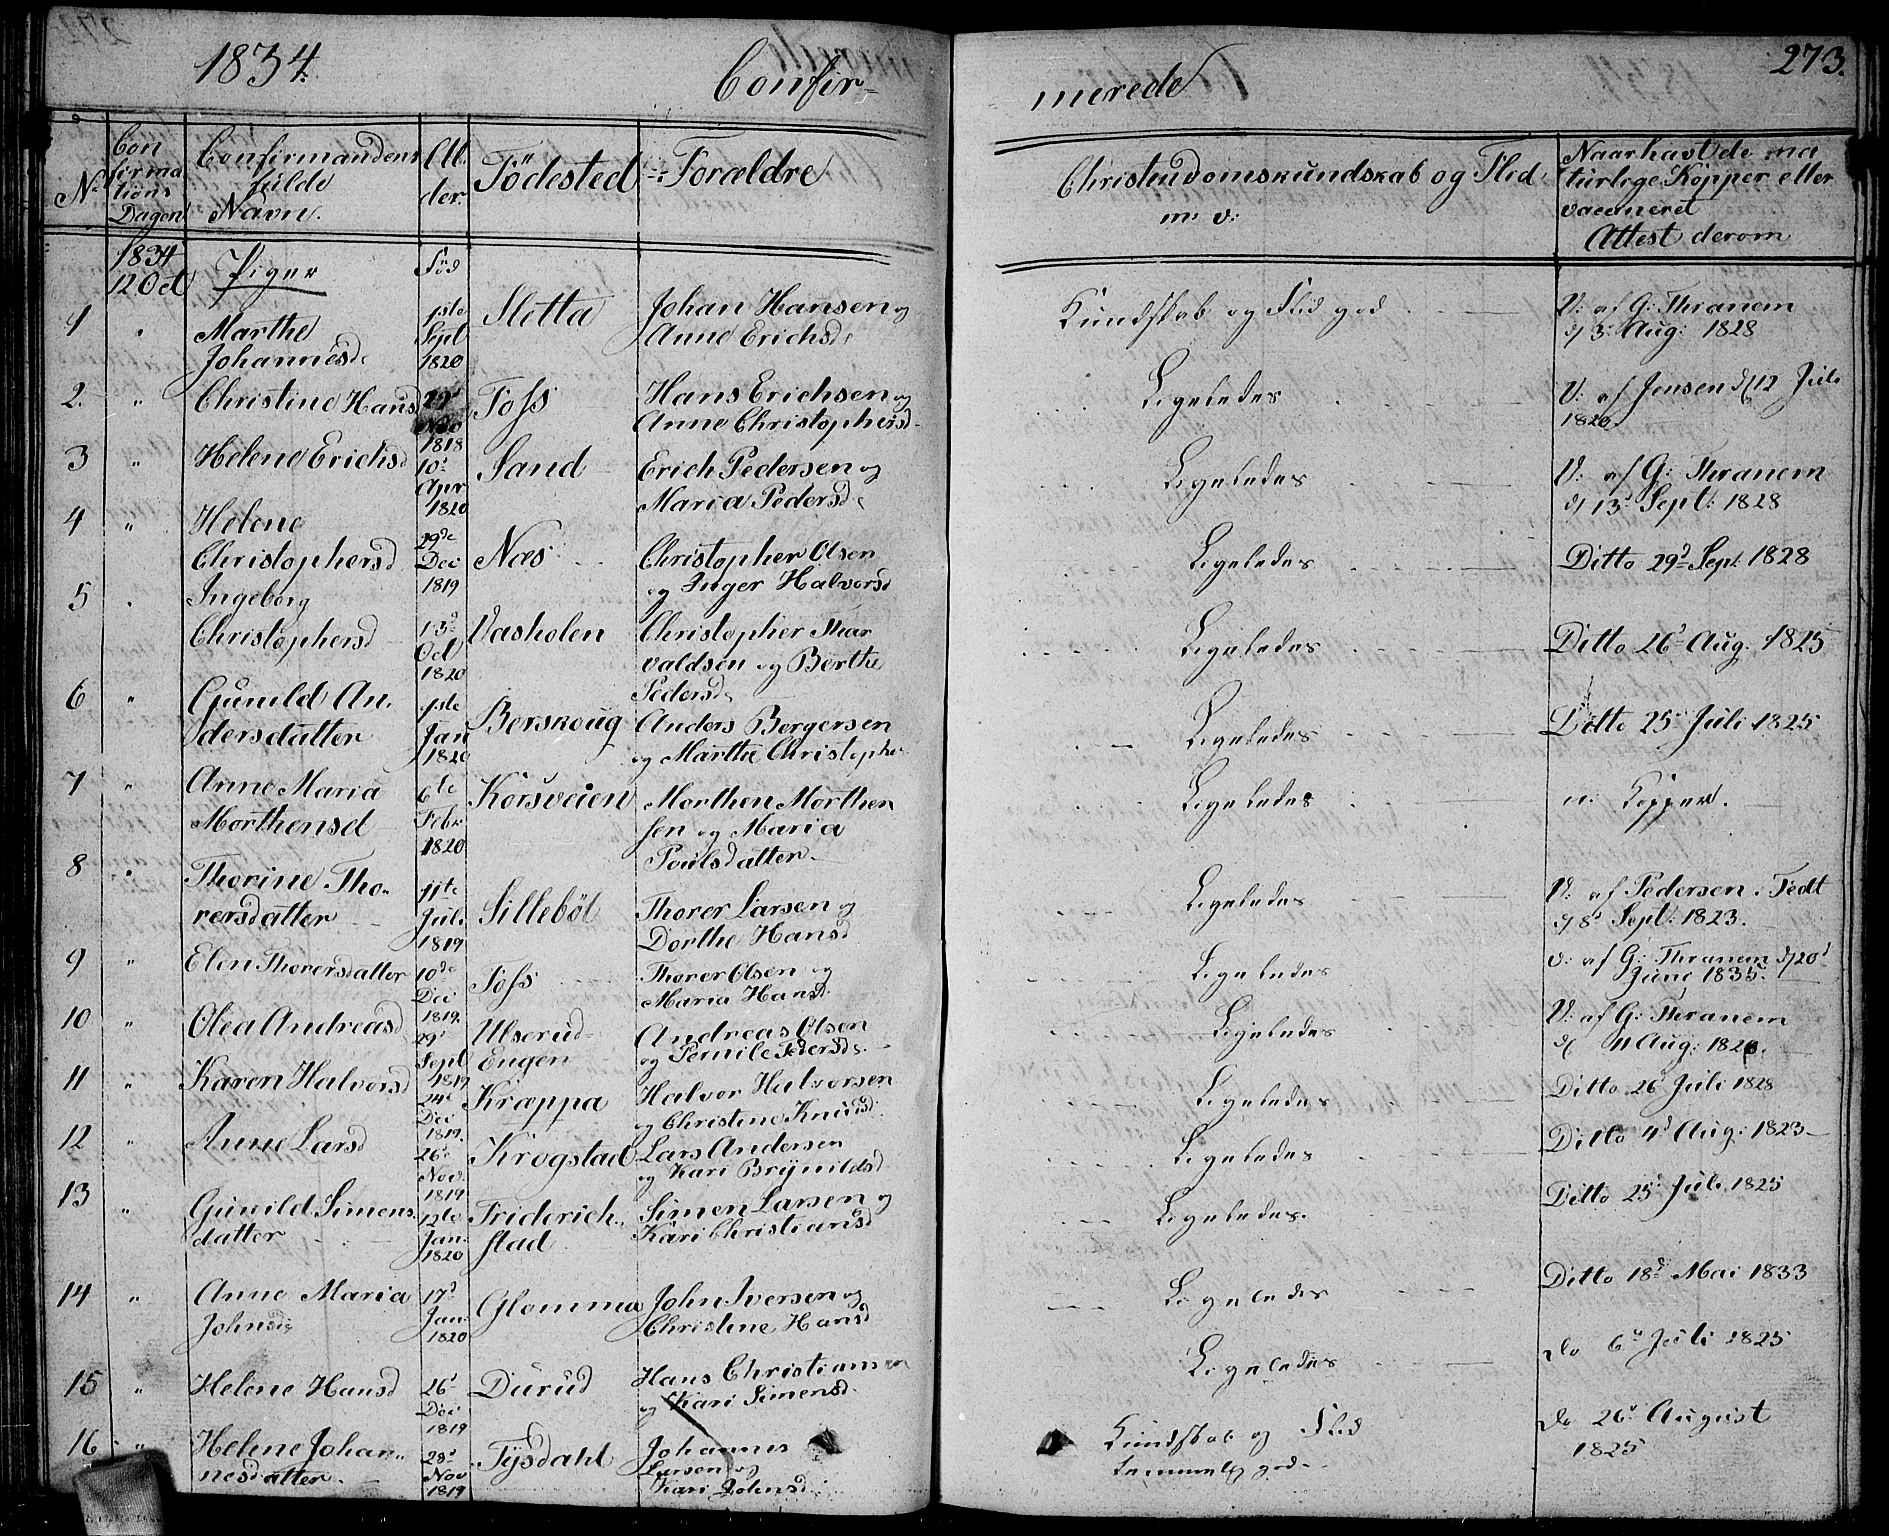 1834.
Confir-
merede
273.
No
Con
firma
tions
Dagen
Confirmandens
fulde
Navn.
Al.
der.
Födested
Forældre
Christendomskundskab og Flid
m: v:
Naar havt de na
turlige Kopper eller
vaccineret
Attest derom
1834
12 Oct
Piger
Föd
1 " Marthe Johannesd: 1ste Sept 1820 Sletta Johan Hansen og Anne Erichsd: Kundskab og Flid god V: af G: Thranem d/ 3 Aug: 1828
2. " Christine Hansd 29d Nov 1818 Foss Hans Erichsen og Anne Christophersd Ligeledes V: af Jensen d/12 Juli 1820
3 " Helene Erichsd 10d Apr 1820 Sand Erich Pedersen og Maria Pedersd: Ligeledes V: af G: Thranem d/ 13d Sept: 1828
4 " Helene Christophersd 29de Dec 1819 Næs Christopher Olsen og Inger Halvorsd Ligeledes Ditto 29d Sept 1828
5 " Ingeborg Christophersd 13d Oct 1820 Vasholen Christopher Thorvaldsen og Berthe Pedersd: Ligeledes Ditto 26d Aug. 1825
6 " Gunild Andersdatter 1ste Jan 1820 Berskoug Anders Bergersen og Marthe Christophe Ligeledes Ditto 25d Juli 1825
7 " Anne Maria Morthensd 6te Febr 1820 Korsveien Morthen Morthensen og Maria Poulsdatter Ligeledes n: Kopper.
8 " Thorine Thorersdatter 11te Juli 1819 Sillebøl Thorer Larsen og Dorthe Hansd Ligeledes V: af Pedersen i Tedt d/ 8d Sept: 1823.
9 " Elen Thorersdatter 10de Dec 1819 Foss Thorer Olsen og Maria Hansd. Ligeledes v: af G: Thranem d/20d Juni 1835.
10 " Olea Andreasd 29d Sept 1819 Ulserud-Eugen Andreas Olsen og Pernile Pedersd: Ligeledes V: af G: Thranem d/ 11 Aug: 1826.
11 " Karen Halvorsd 24d Dec 1819. Kræppa Halvor Halvorsen og Christine Knudsd. Ligeledes Ditto 26d Juli 1828
12 " Anne Larsd 26d Nov. 1819 Krogstad Lars Andersen og Kari Brynildsd Ligeledes Ditto 4d Aug: 1823
13 " Gunild Simensdatter 12te Jan. 1820 Friderichstad Simen Larsen og Kari Christiansd Ligeledes. Ditto 25d Juli 1825
14 " Anne Maria Johnsd: 17d Jan. 1820 Glomma John Iversen og Christine Hansd Ligeledes Ditto 18d Mai 1833
15 " Helene Hansd 26d Dec 1819 Durud Hans Christiansen og Kari Simensd. Ligeledes do 6d Juli 1825
16 " Helene Johannesdatter 28d Nov 1819 Tysdahl Johannes Larsen og Kari Johnsd: Kundskab og Flid temmelig god do 26d August 1825